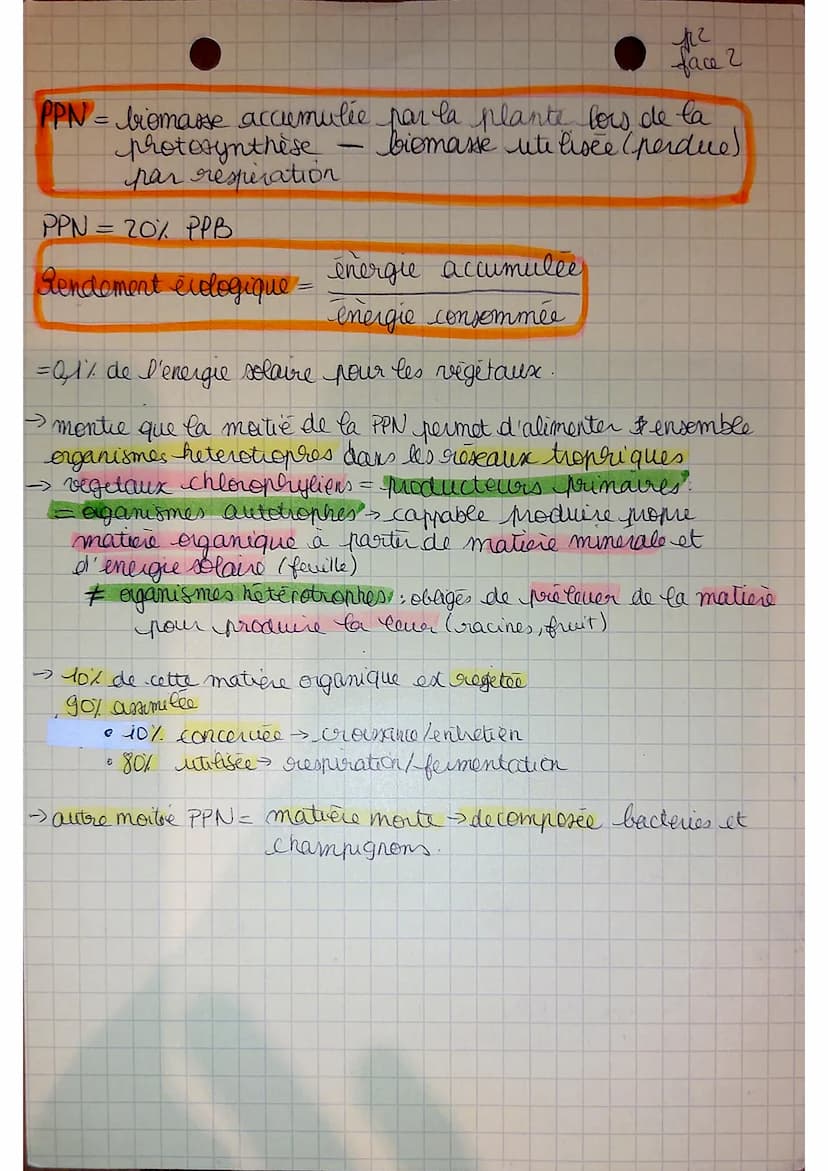 p2
face 2
PPN = biomasse accumulée par la plante lors de la
photosynthèse — biomasse utilisée (perdue)
par respiration
PPN = 20% PPB
Rendement écologique = énergie accumulée
énergie consommée
= 0,1% de l'energie solaire pour les végétaux.
→ montre que la moitié de la PPN permet d'alimenter ensemble
organismes heterotropres dans les réseaux tropriques
→ végetaux chlorophyliens = producteurs primaires
= oganismes autotrophes → cappable produire propre
matière organique à partir de matière minerale et
d'energie solaire (feuille)
≠ oganismes hétérotrophes : obligés de prélever de la matière
pour produire la leur (racines, fruit)
→ 10% de cette matière organique est rejetée
90% assimilée
• 10% concervée → croissance/entretien
• 80% utilisée → respiration/fermentation
→ autre moitié PPN = matière morte → decomposée bacteries et
champignons.